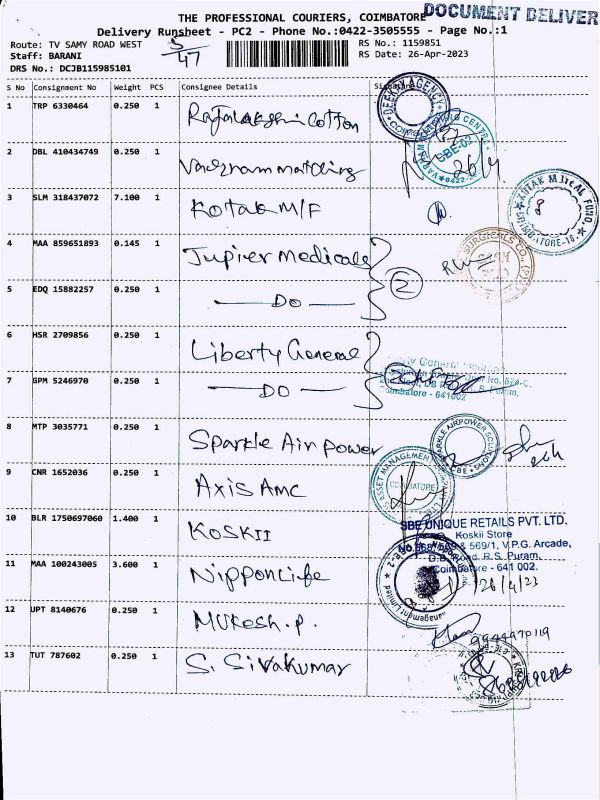 THE PROFESSIONAL COURIERS, COIMBATORE
DOCUMENT DELIVER
Delivery Runsheet - PC2 - Phone No.:0422-3505555 - Page No.:1
Route: TV SAMY ROAD WEST
RS No.: 1159851
Staff: BARANI
47
RS Date: 26-Apr-2023
DRS No.: DCJB115985101
S No Consignment No Weight PCS Consignee Details Signature
1 TRP 6330464 0.250 1 Rajalakshmi Cotton
DEEPIKA AGENCY
2 DBL 410434749 0.250 1 Vadgram matching
SBE-02
26/4
3 SLM 318437072 7.100 1 Kotak M/F
KOTAK MUTUAL FUND
COIMBATORE-18.
4 MAA 859651893 0.145 1 Jupiter Medicals
SURGICALS CO.
5 EDQ 15882257 0.250 1 — DO — 2
6 HSR 2709856 0.250 1 Liberty General
7 GPM 5246970 0.250 1 — DO —
Coimbatore - 641002
8 MTP 3035771 0.250 1 Sparkle Air power
SPARKLE AIRPOWER
CBE
9 CNR 1652036 0.250 1 Axis AMC
AXIS ASSET MANAGEMENT
COIMBATORE
10 BLR 1750697060 1.400 1 KOSKII
SBE UNIQUE RETAILS PVT. LTD.
Koskii Store
& 569/1, V.P.G. Arcade,
D.B. Road, R.S. Puram,
Coimbatore - 641 002.
11 MAA 100243005 3.600 1 Nippon Life
26/4/23
12 UPT 8140676 0.250 1 Mukesh. P.
13 TUT 787602 0.250 1 S. Sivakumar